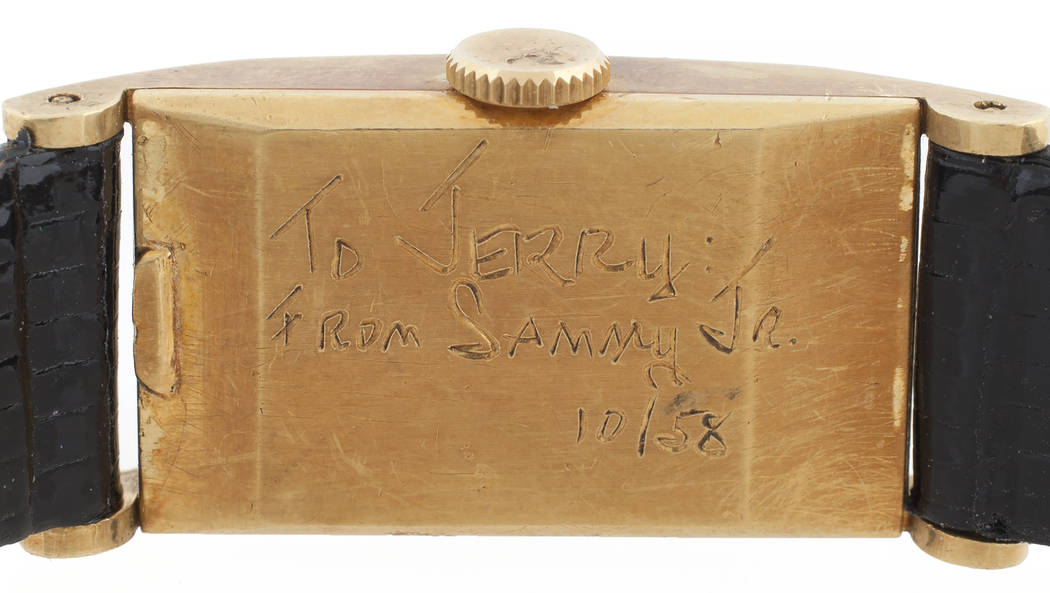 To JERRY:
FROM SAMMY JR.
10/58